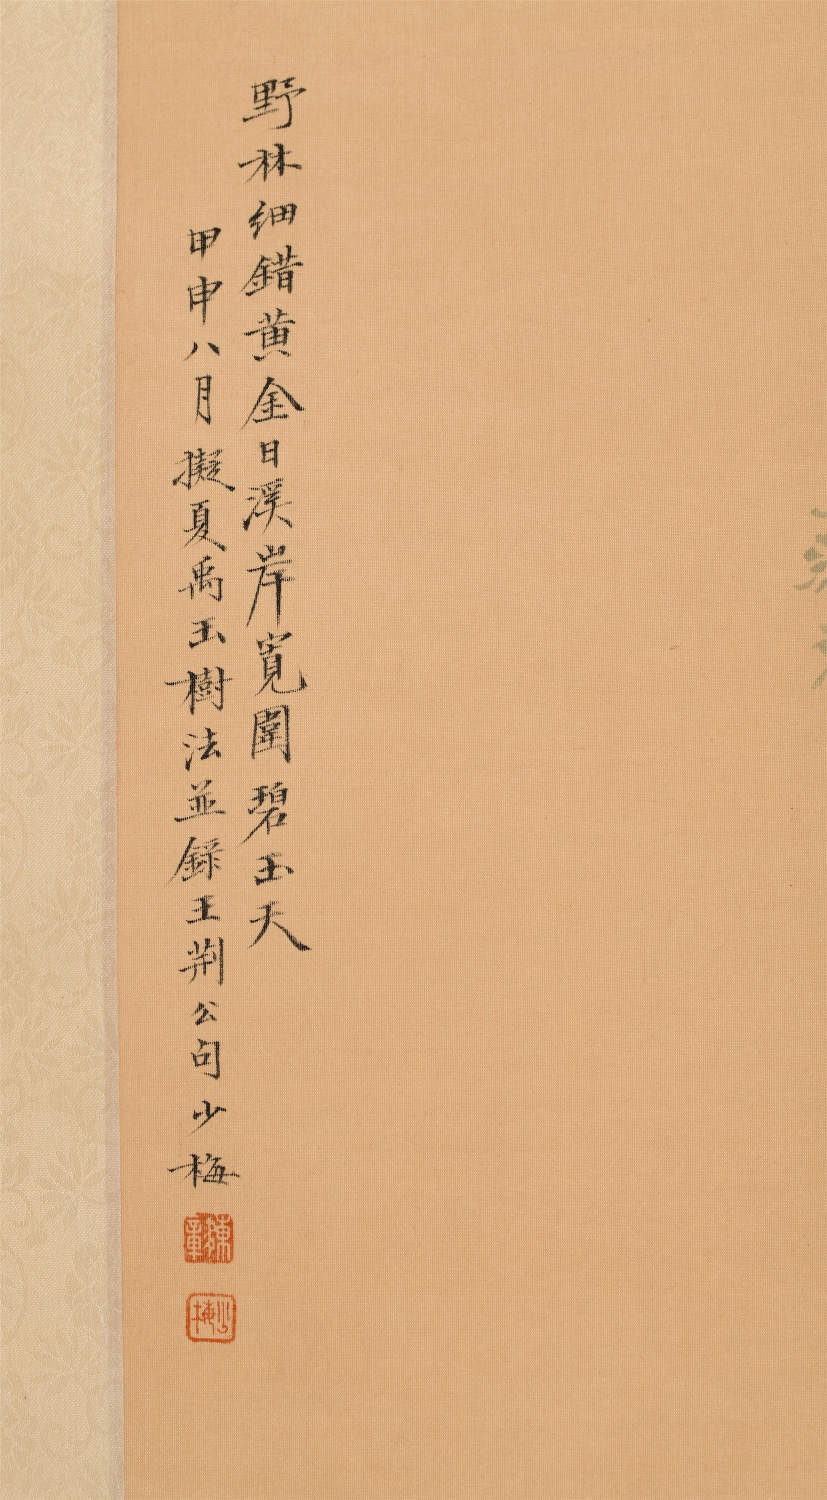 野林細錯黄金日溪岸寬圍碧玉天
甲申八月擬夏禹玉樹法並錄王荆公句少梅
陳雲彰
少梅